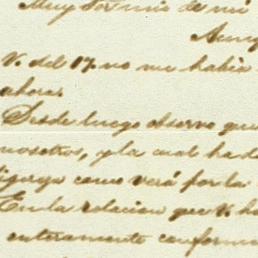 Muy Sor mio de mi
Aunq
V. del 17. no me habia
ahora.
Desde luego observo que
nosotros, y la cual ha de
ligereza como verá por la
En la relacion que V. h
enteramente conforme